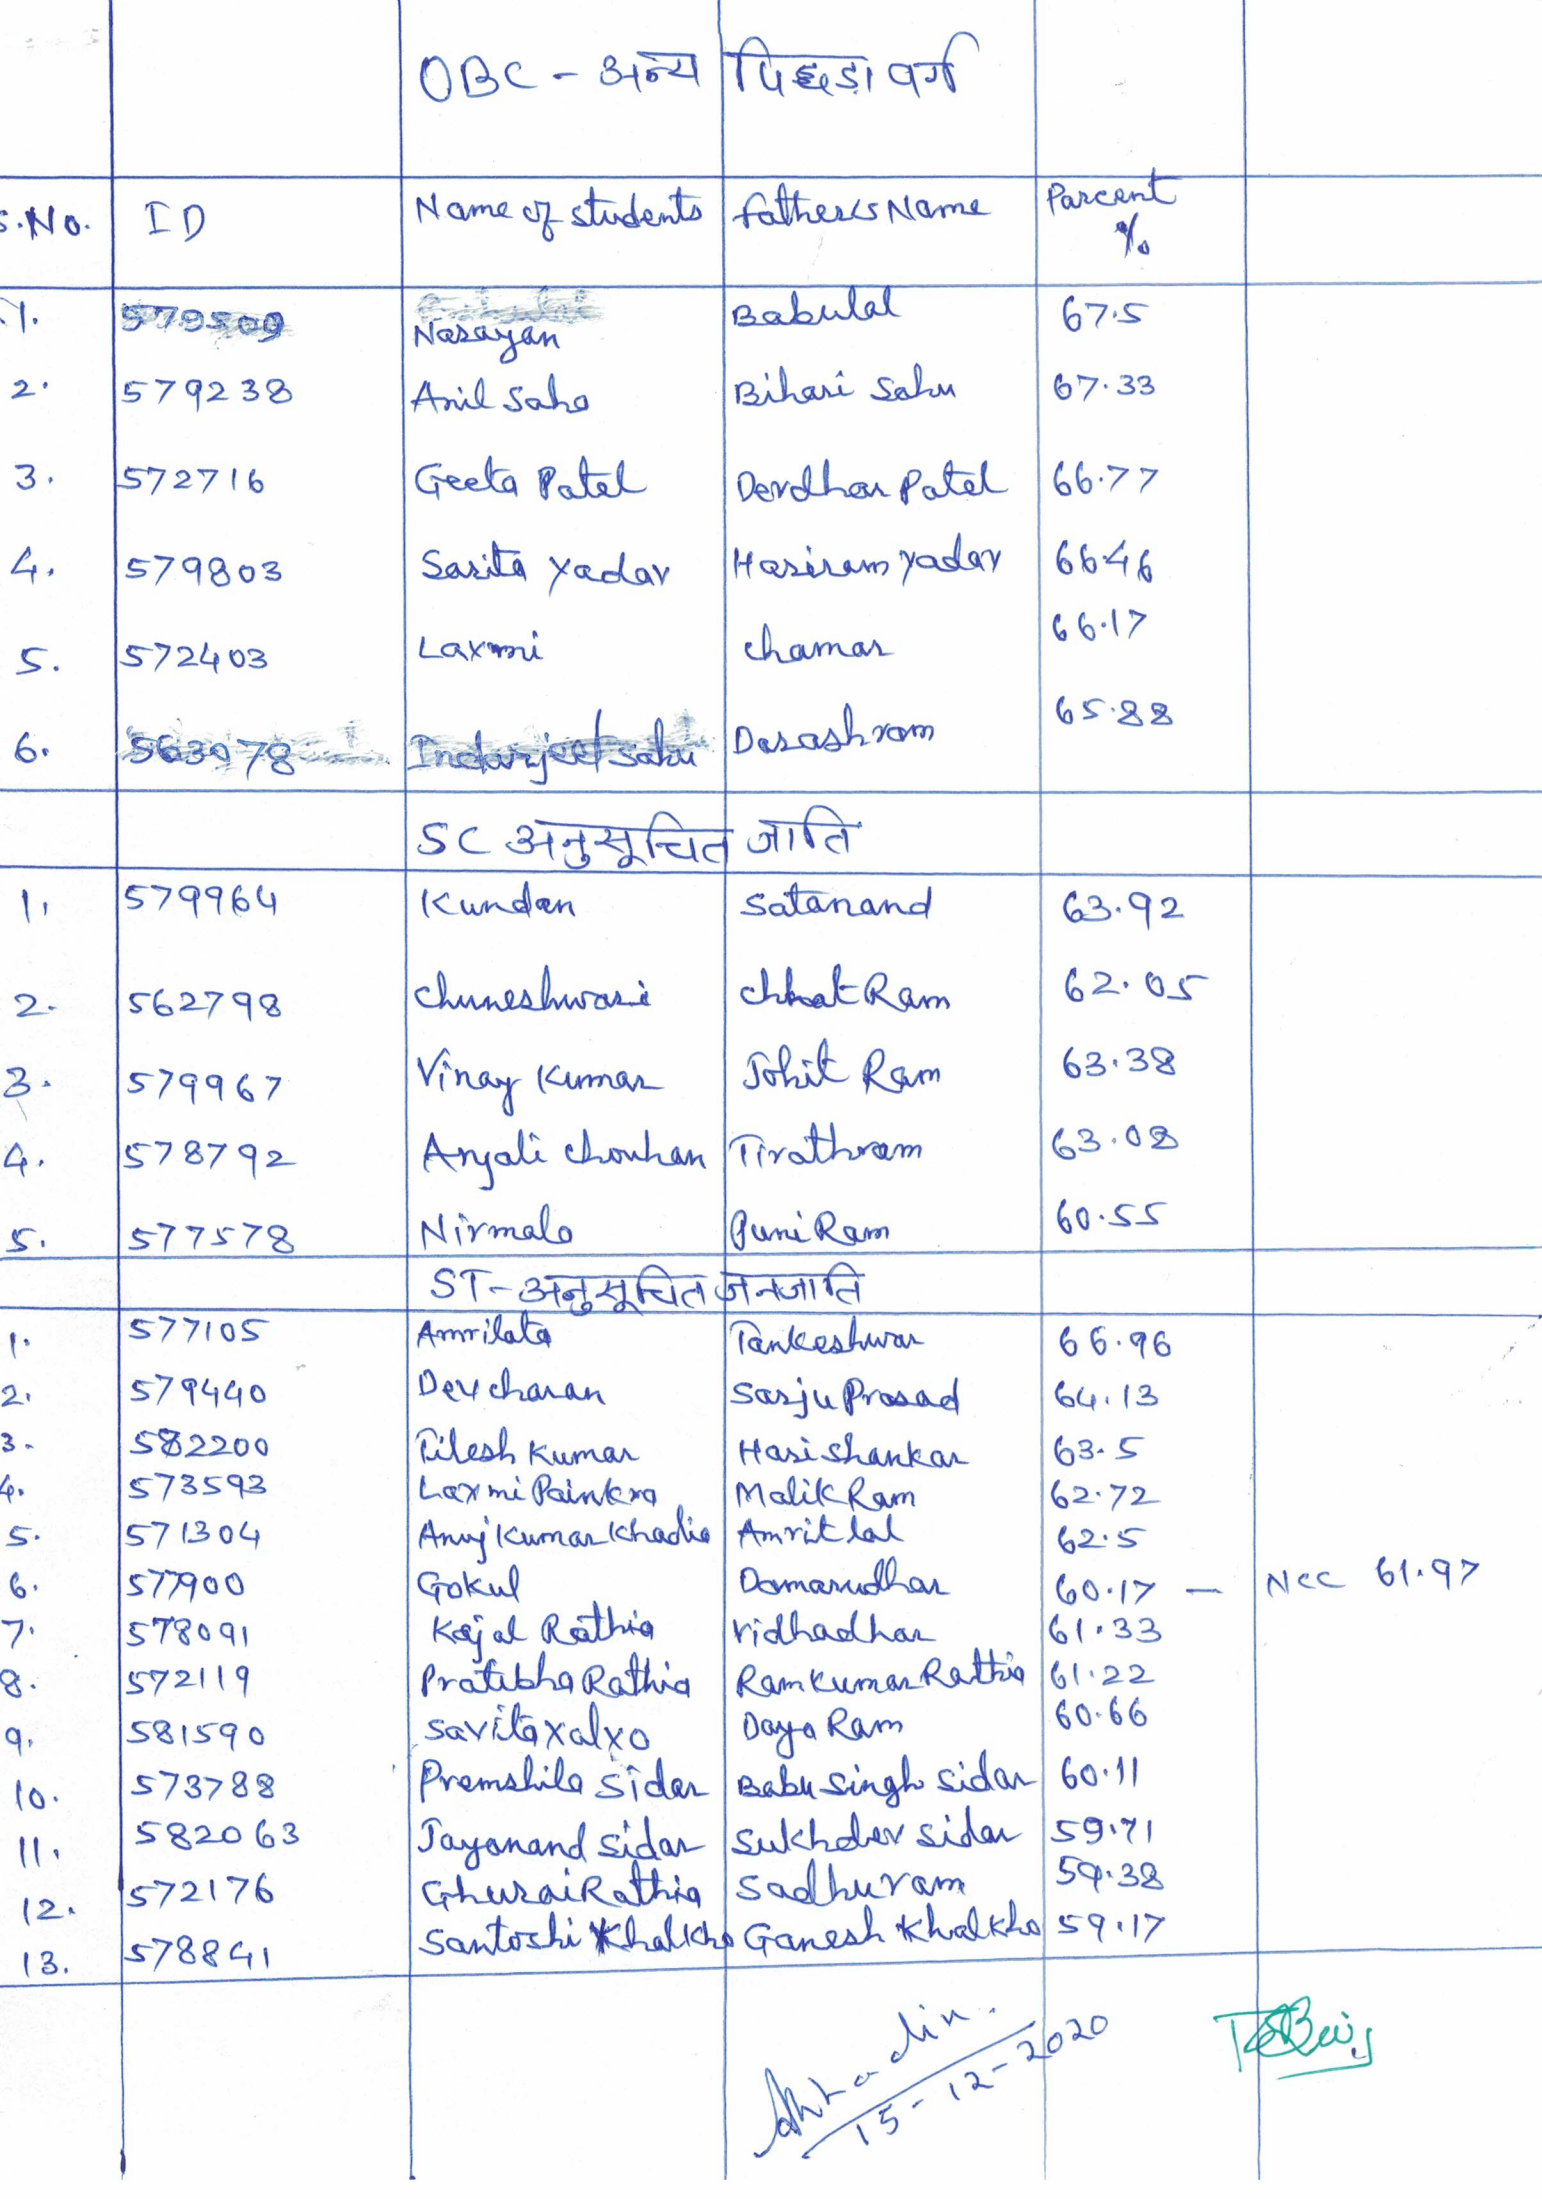 OBC - अन्य पिछड़ा वर्ग
S.No. ID Name of students Father's Name Parcent %
1. 579509 Narayan Babulal 67.5
2. 579238 Anil Saho Bihari Sahu 67.33
3. 572716 Geeta Patel Devdhar Patel 66.77
4. 579803 Sarita Yadav Hariram Yadav 66.46
5. 572403 Laxmi Chamar 66.17
6. 563078 Indarjeet Sahu Dasashram 65.88
SC अनुसूचित जाति
1. 579964 Kundan Satanand 63.92
2. 562798 Chuneshwari Chhat Ram 62.05
3. 579967 Vinay Kumar Johit Ram 63.38
4. 578792 Anjali Chouhan Tirathram 63.08
5. 577578 Nirmala Puni Ram 60.55
ST - अनुसूचित जनजाति
1. 577105 Amrilata Tankeshwar 66.96
2. 579440 Devcharan Sarju Prasad 64.13
3. 582200 Tilesh Kumar Harishankar 63.5
4. 573593 Laxmi Painkra Malik Ram 62.72
5. 571304 Anuj Kumar Khadia Amrit lal 62.5
6. 577900 Gokul Damarudhar 60.17 - NCC 61.97
7. 578091 Kajal Rathia Vidhadhar 61.33
8. 572119 Pratibha Rathia Ramkumar Rathia 61.22
9. 581590 Savita Xalxo Daya Ram 60.66
10. 573788 Premshila Sidar Babu Singh Sidar 60.11
11. 582063 Jayanand Sidar Sukhdev Sidar 59.71
12. 572176 Ghurai Rathia Sadhuram 59.38
13. 578841 Santoshi Khalkho Ganesh Khalkho 59.17
15-12-2020